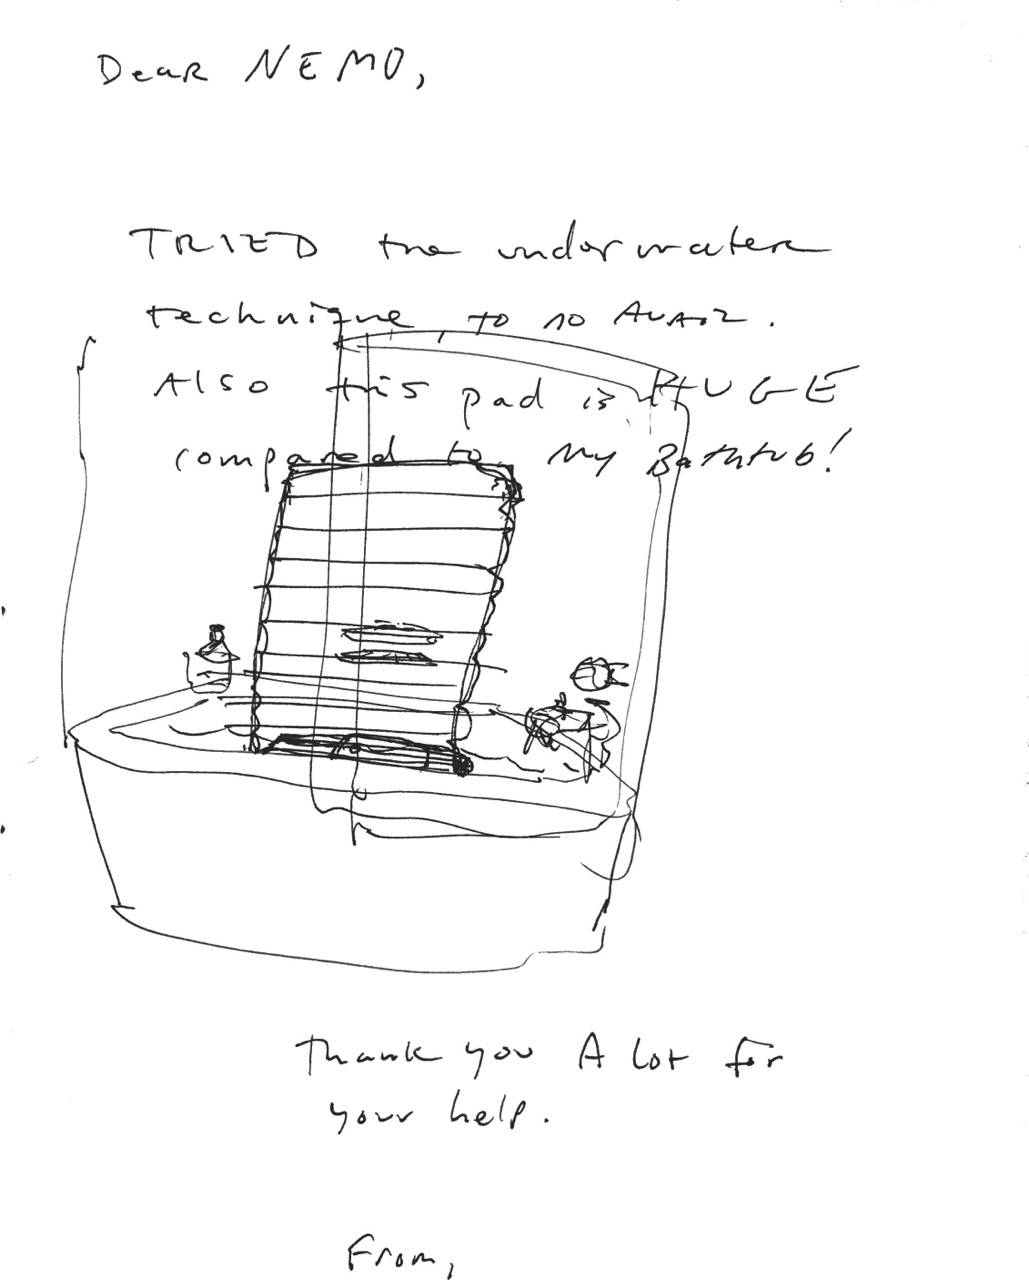 Dear NEMO,
TRIED the underwater
technique to no AVAIL.
Also this pad is HUGE
compared to my Bathtub!
Thank you A lot for
your help.
From,